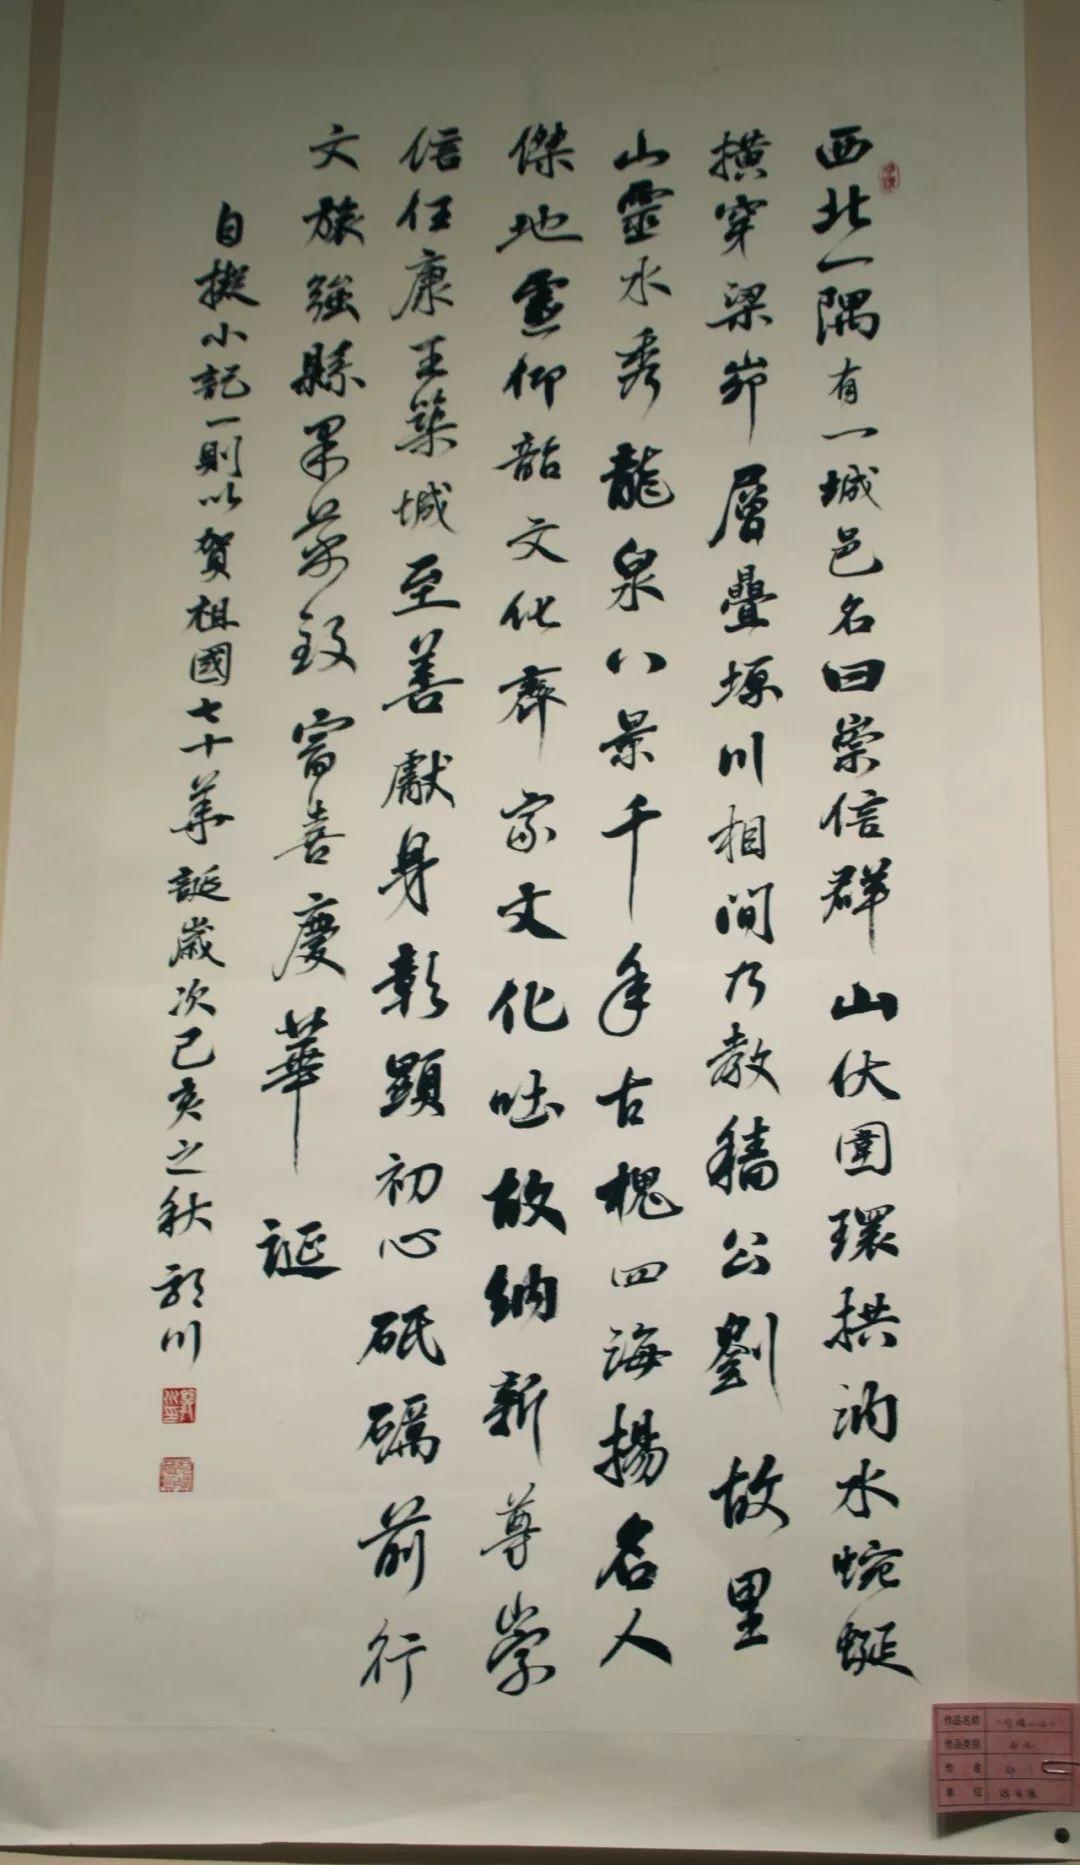 西北一隅有一城邑名曰崇信群山伏圍環拱汭水蜿蜒
橫穿梁峁層疊塬川相間乃教穡公劉故里
山靈水秀龍泉八景千年古槐四海揚名人
傑地靈仰韶文化齊家文化吐故納新尊崇
信任康王築城至善獻身彰顯初心砥礪前行
文旅強縣果菜致富喜慶華誕
自擬小記一則以賀祖國七十華誕歲次己亥之秋郭川
作品名称
作品类别
作者
单位